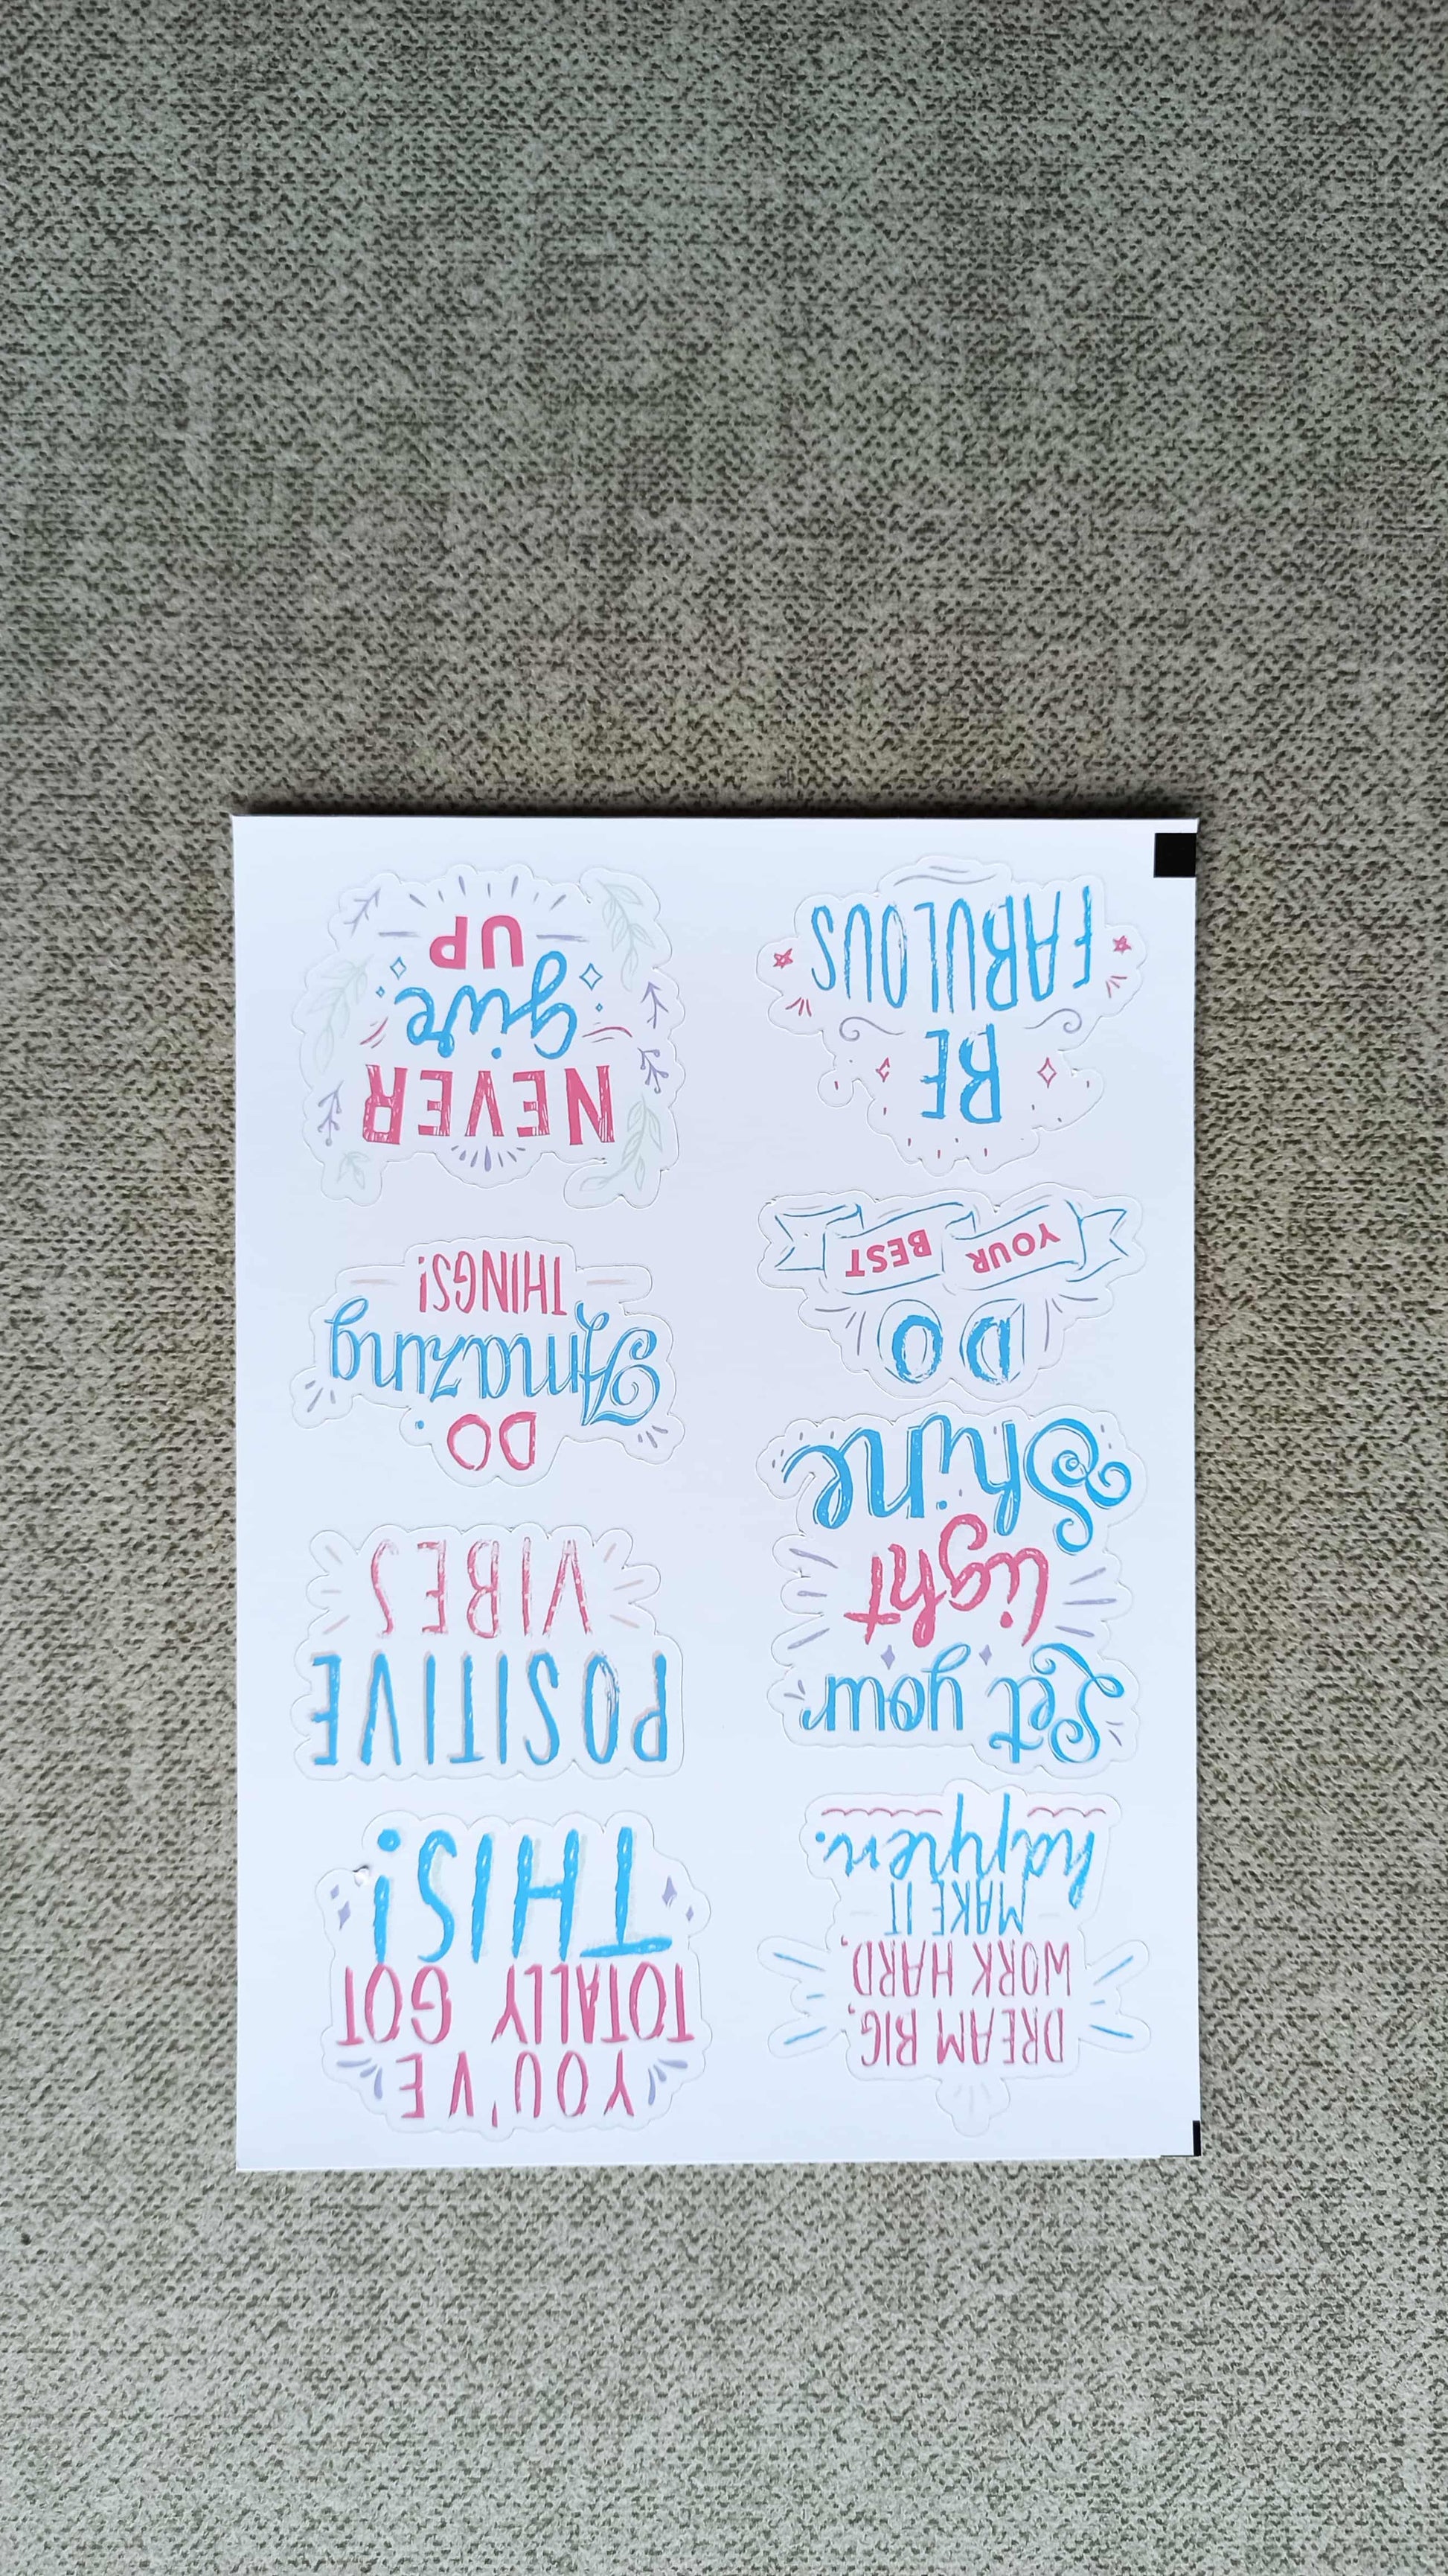 DREAM BIG,
WORK HARD,
MAKE IT
happen.
Let your
light
Shine
DO
YOUR BEST
BE
FABULOUS
YOU'VE
TOTALLY GOT
THIS!
POSITIVE
VIBES
DO
Amazing
THINGS!
NEVER
give
UP